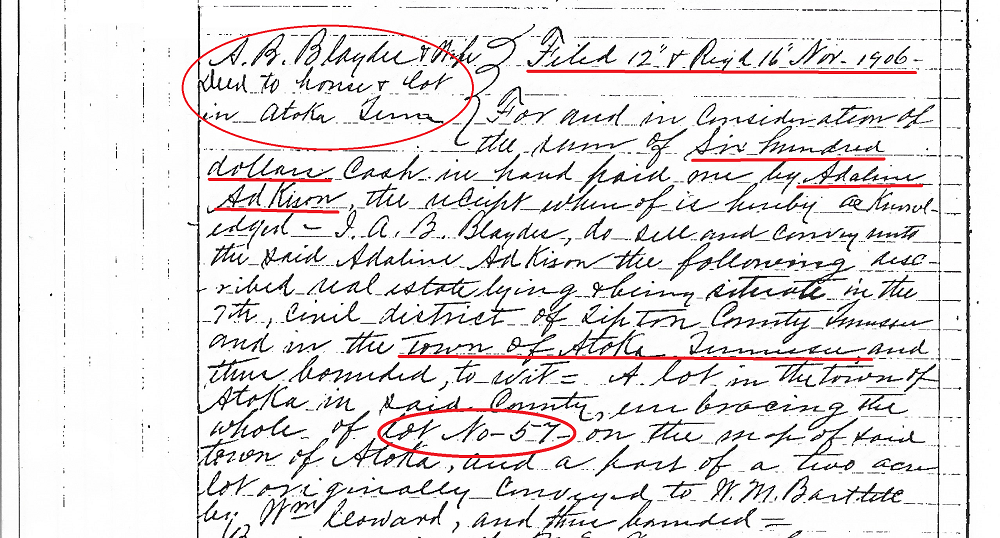 A. B. Blaydes & Wife
Deed to house & lot
in Atoka Tenn
Filed 12" & Regd 16" Nov- 1906-
For and in Consideration of
the sum of Six hundred
dollars Cash in hand paid me by Adaline
Adkison, the receipt where of is hereby acknowl-
edged - I. A. B. Blaydes, do sell and convey unto
the said Adaline Adkison the following desc-
ribed real estate lying & being situate in the
7th, Civil district of Tipton County Tennessee
and in the town of Atoka Tennessee, and
thus bounded, to wit = A lot in the town of
Atoka in said County, embracing the
whole of lot No-57- on the map of said
town of Atoka, and a part of a two acre
lot originally Conveyed to W. M. Bartlett
by Wm Leoward, and thus bounded =